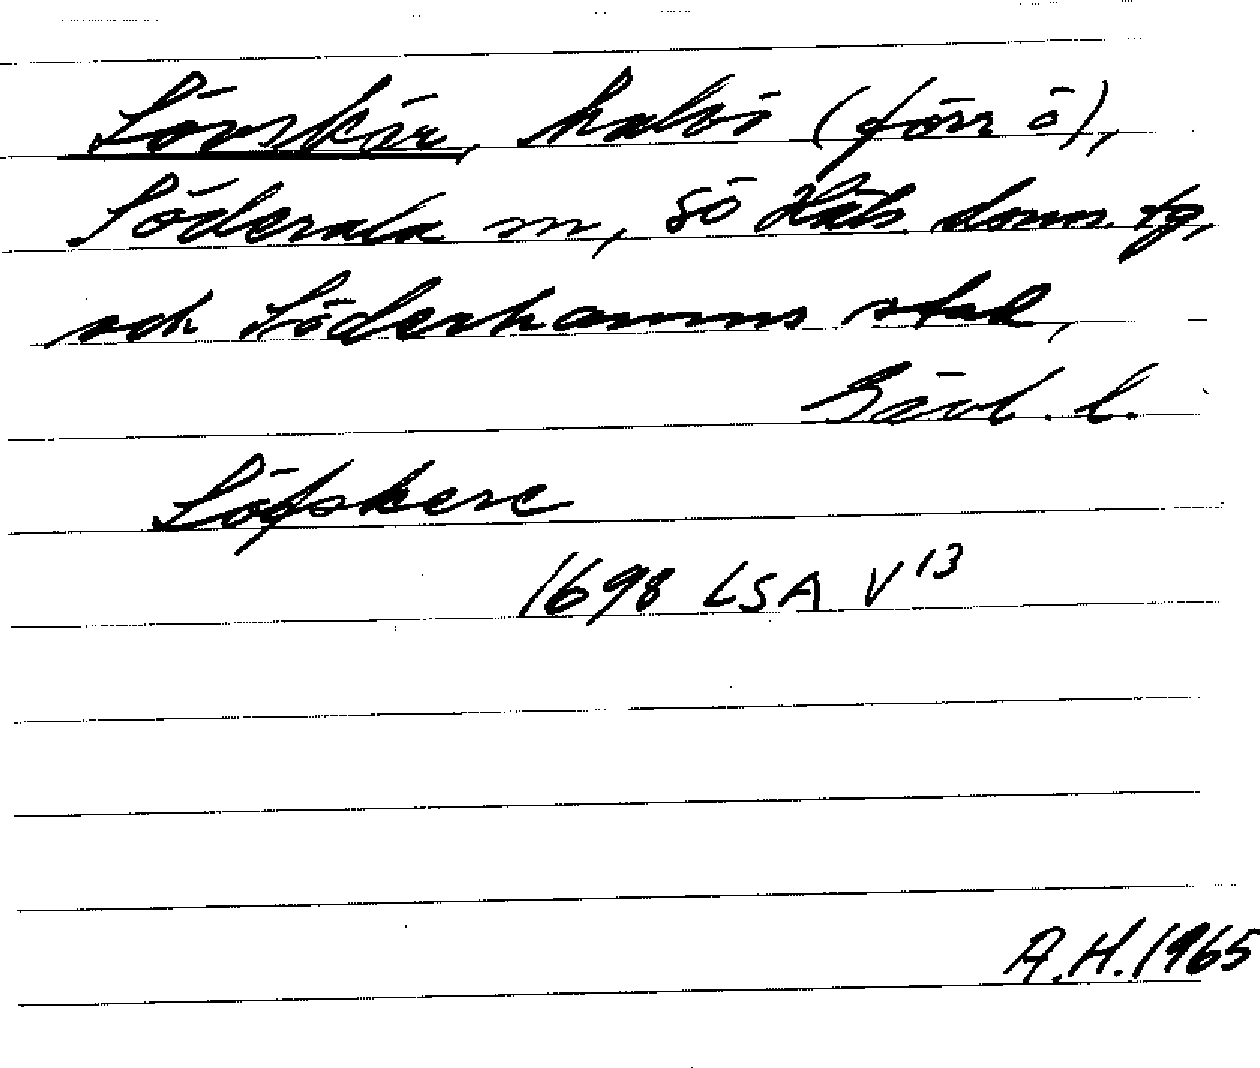 Lövskär, halvö (förr ö),
Söderala sn, SÖ Häls. doms. tg,
och Söderhamns stad,
Gävl. l.
Löfskere
1698 LSA V 13
A.H. 1965